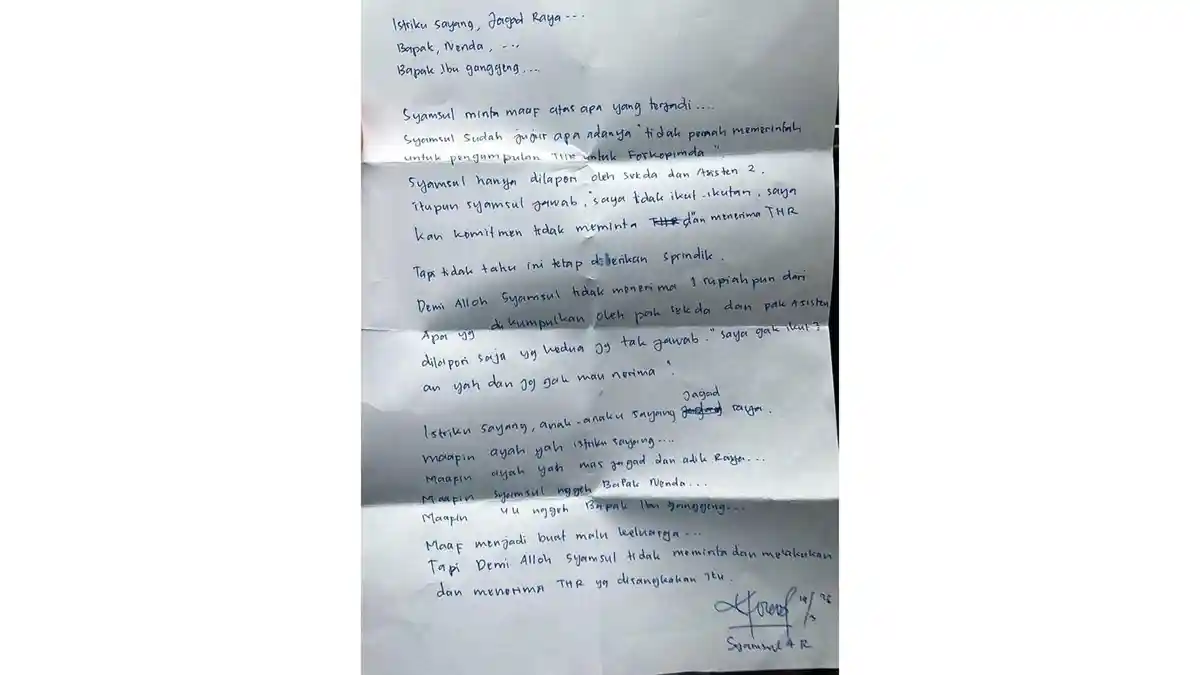 Istriku sayang, Jagad Raya...
Bapak, Nenda, ...
Bapak Ibu ganggeng...
Syamsul minta maaf atas apa yang terjadi....
Syamsul sudah jujur apa adanya "tidak pernah memerintah
untuk pengumpulan THR untuk Forkopimda".
Syamsul hanya dilapori oleh sekda dan Asisten 2.
itupun syamsul jawab, "saya tidak ikut-ikutan, saya
kan komitmen tidak meminta THR dan menerima THR"
Tapi tidak tahu ini tetap diberikan sprindik.
Demi Alloh Syamsul tidak menerima 1 rupiah pun dari
Apa yg dikumpulkan oleh pak sekda dan pak Asisten
dilapori saja yg kedua jg tak jawab. "saya gak ikut2
an yah dan jg gak mau nerima".
Jagad
Istriku sayang, anak-anaku sayang raya.
maapin ayah yah istriku sayang....
Maapin ayah yah mas jagad dan adik Raya...
Maapin syamsul nggeh Bapak Nenda...
Maapin uu nggeh Bapak Ibu ganggeng...
Maaf menjadi buat malu keluarga...
Tapi Demi Alloh Syamsul tidak meminta dan melakukan
dan menerima THR yg disangkakan itu.
Syamsul A R